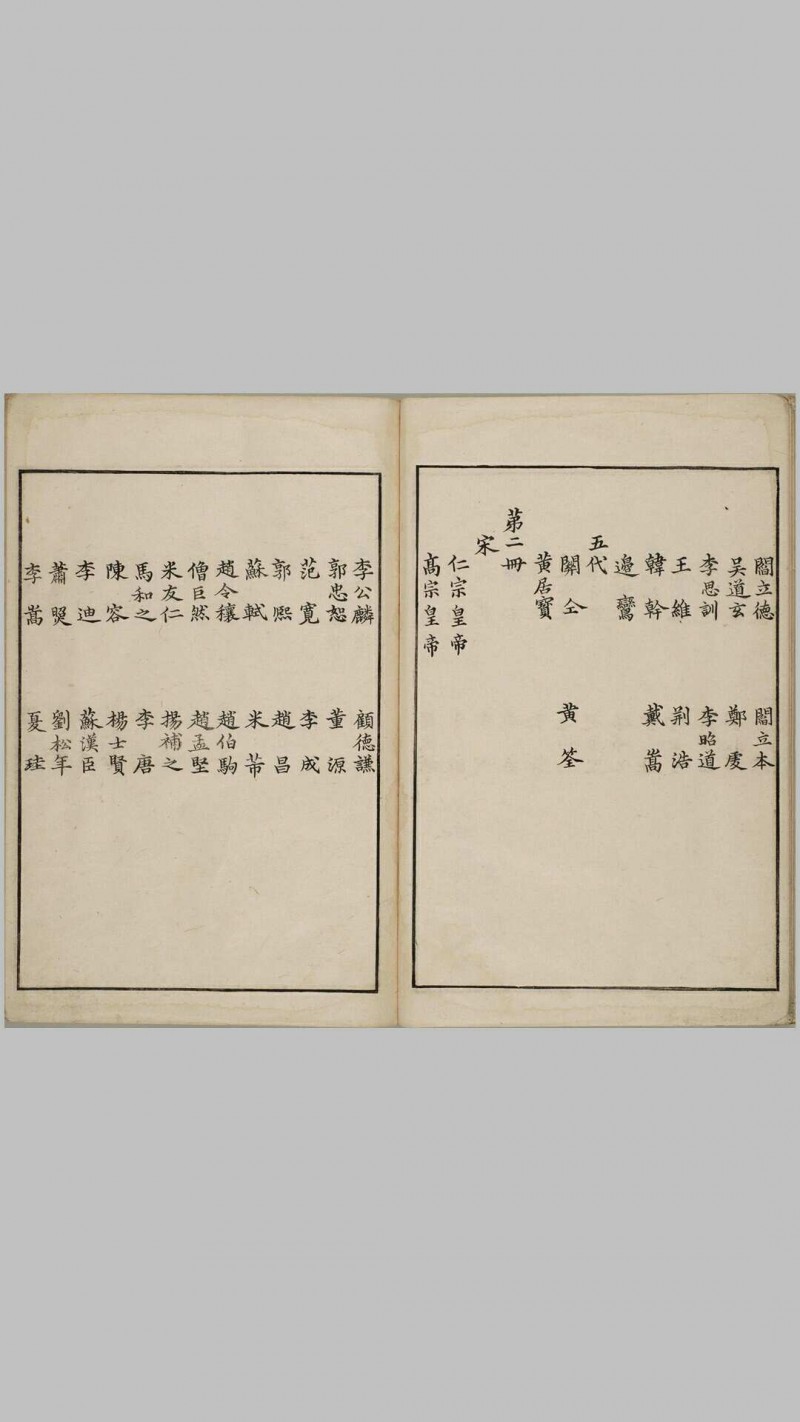 閻立德 閻立本
吴道玄 鄭虔
李思訓 李昭道
王維 荆浩
韓幹 戴嵩
邉鸞
五代
關仝 黄筌
黄居寶
第二冊
宋
仁宗皇帝
髙宗皇帝
李公麟 顧德謙
郭忠恕 董源
范寬 李成
郭熈 趙昌
蘇軾 米芾
趙令穰 趙伯駒
僧巨然 趙孟堅
米友仁 揚補之
馬和之 李唐
陳容 楊士賢
李迪 蘇漢臣
蕭照 劉松年
李嵩 夏珪